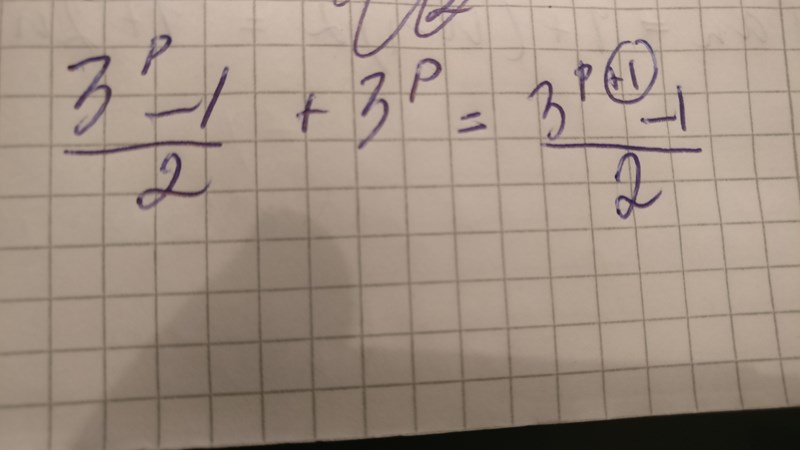 (3^p - 1)/2 + 3^p = (3^(p+1) - 1)/2